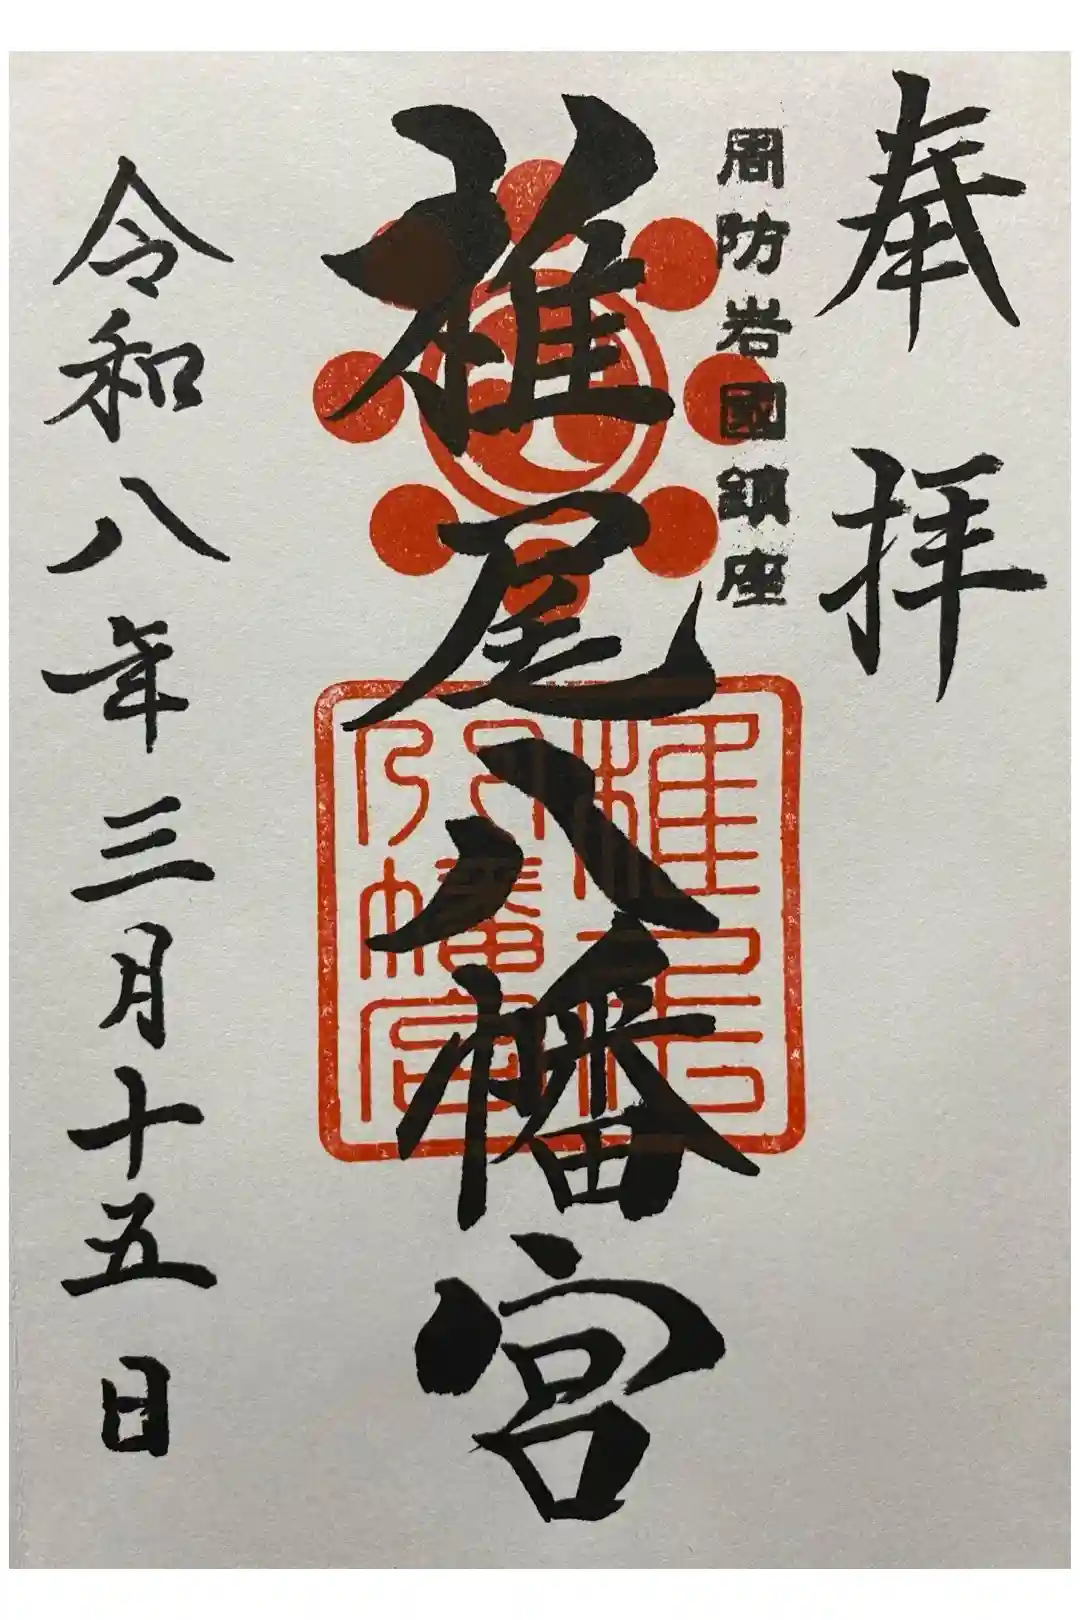 奉拝
周防岩國鎮座
椎尾八幡宮
椎尾
八幡宮
令和八年三月十五日